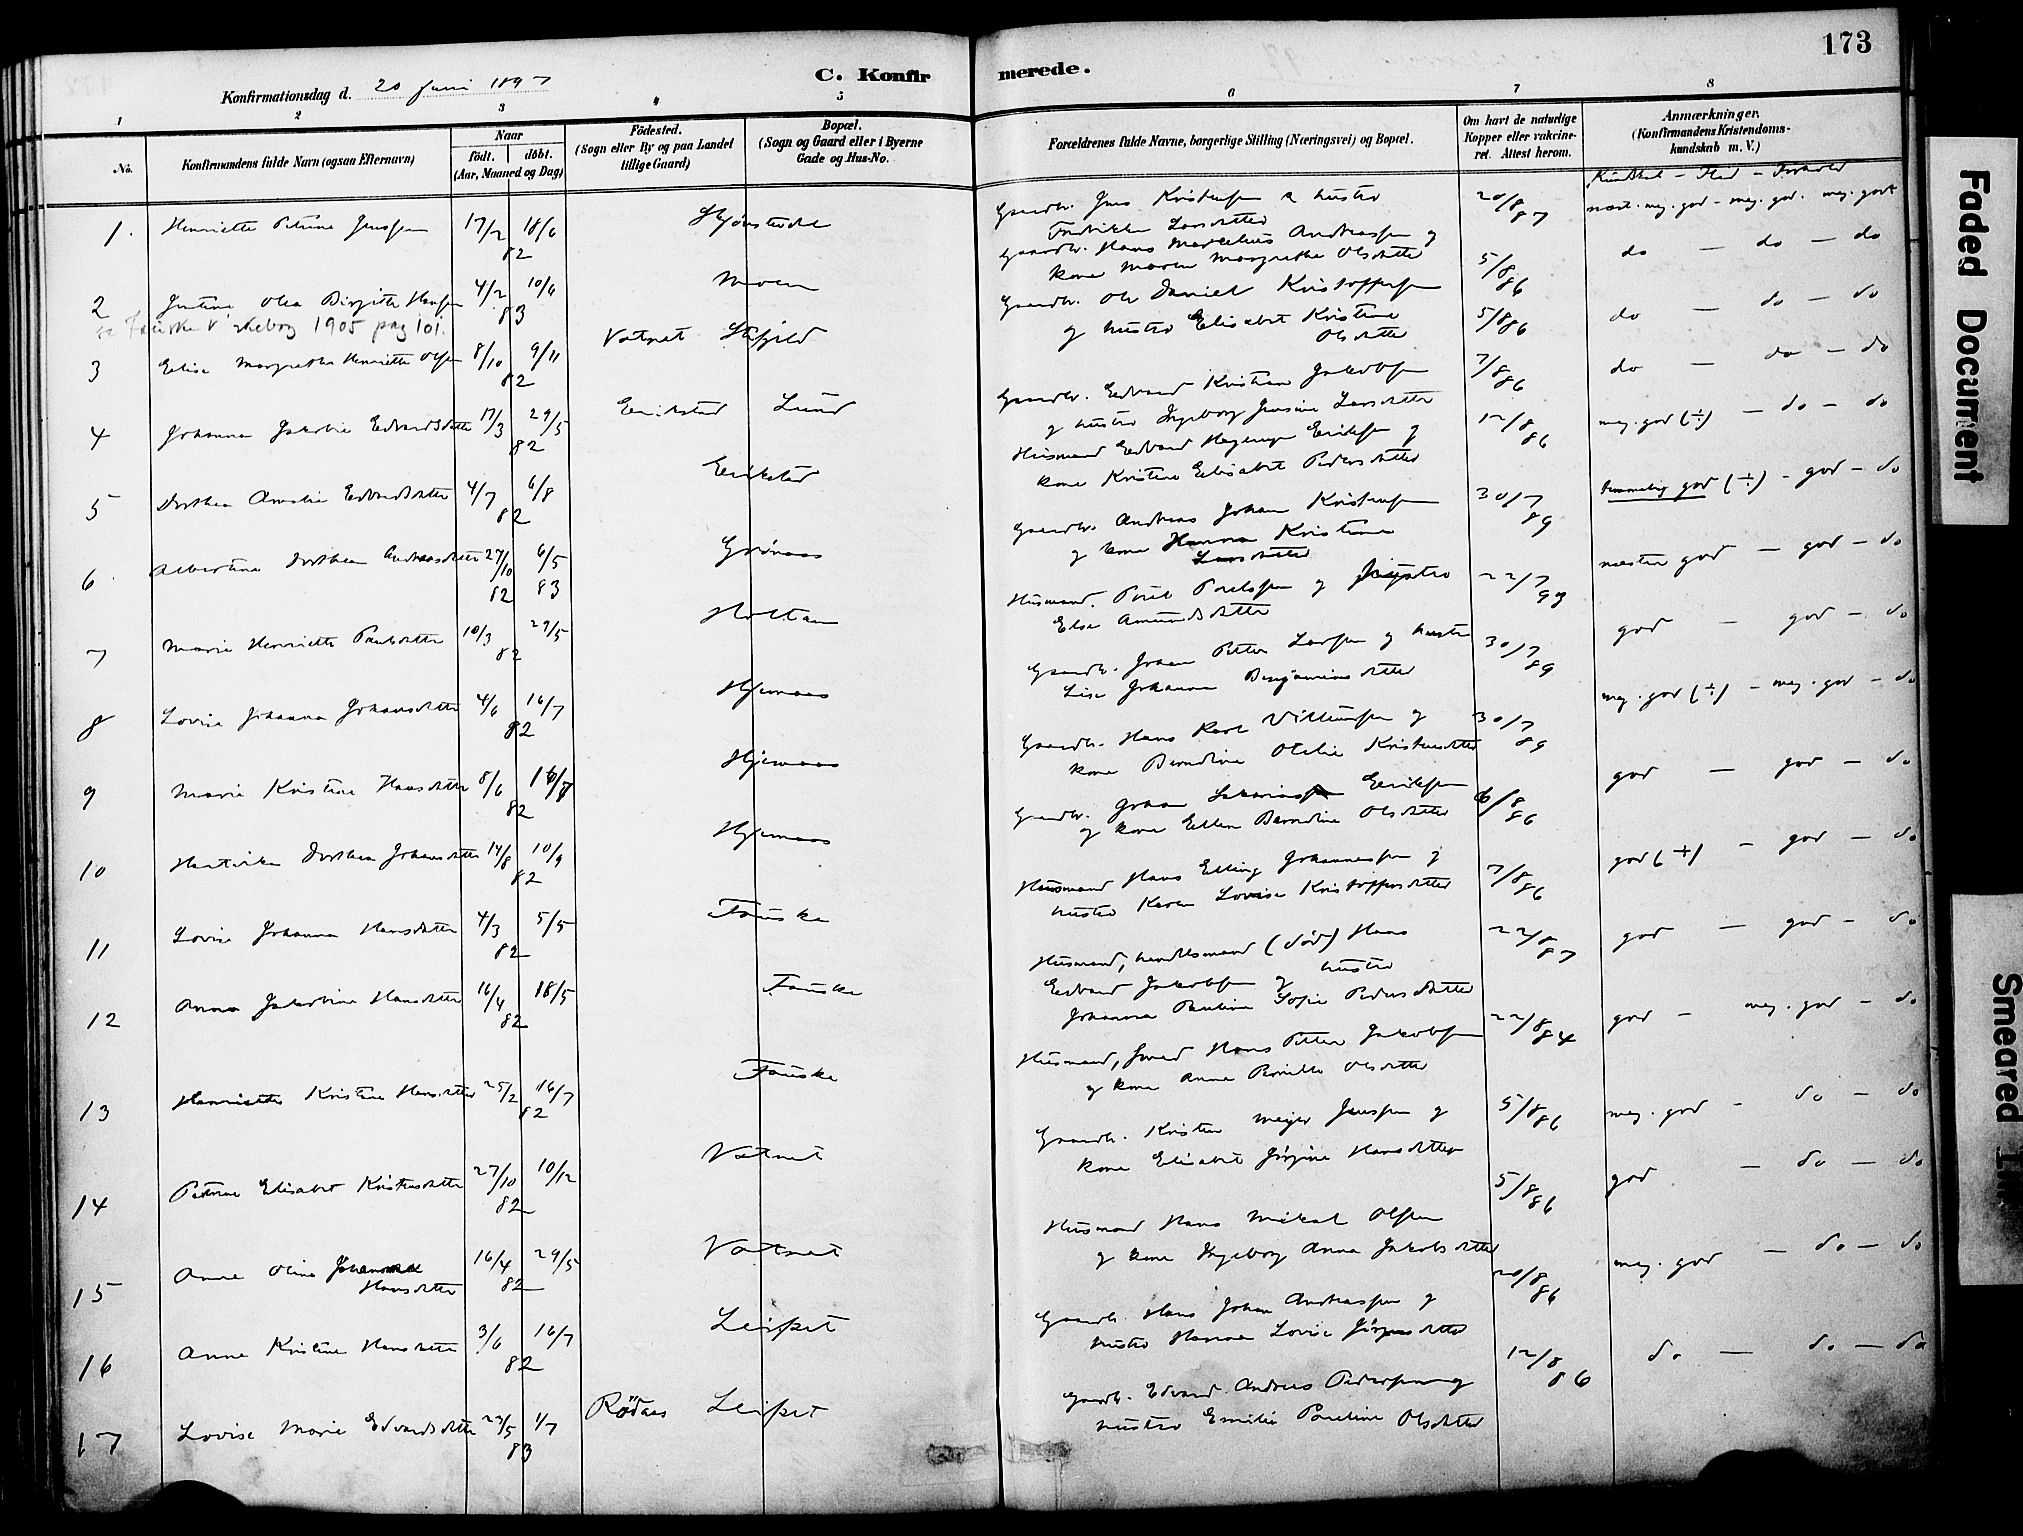 173
C. Konfir merede.
Konfirmationsdag d. 20 Juni 1897
1 2 3 4 5 6 7 8
No. Konfirmandens fulde Navn (ogsaa Efternavn) Naar födt. döbt. (Aar, Maaned og Dag) Födested. (Sogn eller By og paa Landet tillige Gaard) Bopæl. (Sogn og Gaard eller i Byerne Gade og Hus-No. Forældrenes fulde Navne, borgerlige Stilling (Næringsvei) og Bopæl. Om havt de naturlige Kopper eller vakcineret. Attest herom. Anmærkninger. (Konfirmandens Kristendomskundskab m. V.)
Kundskab - Flid - Forhold
1. Henriette Petrine Jenssen 17/2 18/6 82 Gaardbr. Jens Kristensen & hustru Fredrikke Larsdatter 20/8 87 næst. meg. god - meg. god. meg. godt
2 Justine Olea Birgitte Hansen 4/2 10/6 83 Moen Gaardbr. Hans Marselius Andreassen og kone Maren Margrethe Olsdatter 5/8 86 do - do - do
1905 pag 101.
3 Elise Margrethe Henriette Olsen 8/10 9/11 82 Vatnet Gaardbr. Ole Daniel Kristoffersen og hustru Elisabet Kristine Olsdatter 5/8 86 do - do - do
4 Johanna Jakobie Edvardsdatter 17/3 29/5 82 Erikstad Lund Gaardbr. Edvard Kristian Jakobsen og hustru Ingeborg Jensine Larsdatter 7/8 86 do - do - do
5 Dorthea Amalie Edvardsdatter 4/7 6/8 82 Erikstad Husmand Edvard Eriksen og kone Kristine Elisabet Pedersdatter 12/8 86 meg. god (÷) - do - do
6. Albertine Dorthea Andreasdatter 27/10 82 6/5 83 Grønaas Gaardbr. Andreas Johan Kristensen og kone Hanna Kristine Larsdatter 30/7 89 temmelig god (÷) - god - do
7 Marie Henriette Paulsdatter 10/3 29/5 82 Holtan Husmand. Poul Poulsen og hustru Else Amundsdatter 22/7 93 næsten god - god - do
8 Lovise Johanna Johansdatter 4/6 16/7 82 Hjemaas Gaardbr. Johan Petter Larsen og hustru Lise Johanna Benjaminsdatter 30/7 89 god - god - do
9 Marie Kristine Hansdatter 8/6 16/7 82 Hjemaas Gaardbr. Hans Karl Villumsen og kone Berndine Otelie Kristensdatter 30/7 89 meg. god (÷) - meg. god - do
10 Hartvikka Dorthea Johansdatter 14/8 10/9 82 Hjemaas Gaardbr. Johan Eriksen og kone Ellen Berndine Olsdatter 6/8 86 god - god - do
11 Lovise Johanna Hansdatter 4/3 5/5 82 Fauske Husmand Hans Elling Johannessen og hustru Karen Lovise Kristoffersdatter 7/8 86 god (÷) - god - do
12 Anna Jakobine Hansdatter 16/4 18/5 82 Fauske Husmand, handelsmand (død) Hans Edvard Jakobsen og hustru Johanna Pauline Sofie Pedersdatter 22/8 87 god - god - do
13 Henriette Kristine Hansdatter 25/2 16/7 82 Fauske Husmand, smed Hans Petter Jakobsen og kone Anne Pernille Olsdatter 22/8 84 god - meg. god - do
14 Petrine Elisabet Kristensdatter 27/10 10/12 82 Vatnet Gaardbr. Kristen Meyer Jenssen og kone Elisabet Jørgine Hansdatter 5/8 86 meg. god - do - do
15 Anne Oline Hansdatter 16/4 29/5 82 Vatnet Husmand Hans Mikal Olsen og kone Ingeborg Anna Jakobsdatter 5/8 86 god - do - do
16 Anne Kristine Hansdatter 3/6 16/7 82 Leifset Gaardbr. Hans Johan Andreassen og hustru Hanna Lovise Jørgensdatter 20/8 86 meg. god - do - do
17 Lovise Marie Edvardsdatter 23/5 1/7 83 Rödaas Leifset Gaardbr. Edvard Andreas Pedersen og hustru Emilie Pauline Olsdatter 12/8 86 do - do - do
Faded Document
Smeared